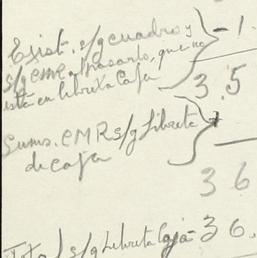 Exist. s/g cuadro y - 1.
s/g eme atrasarlo, que no
está en libreta Caja 3 5
Sums. EMR s/g Libreta
de caja
3 6
s/g Libreta Caja - 3 6.